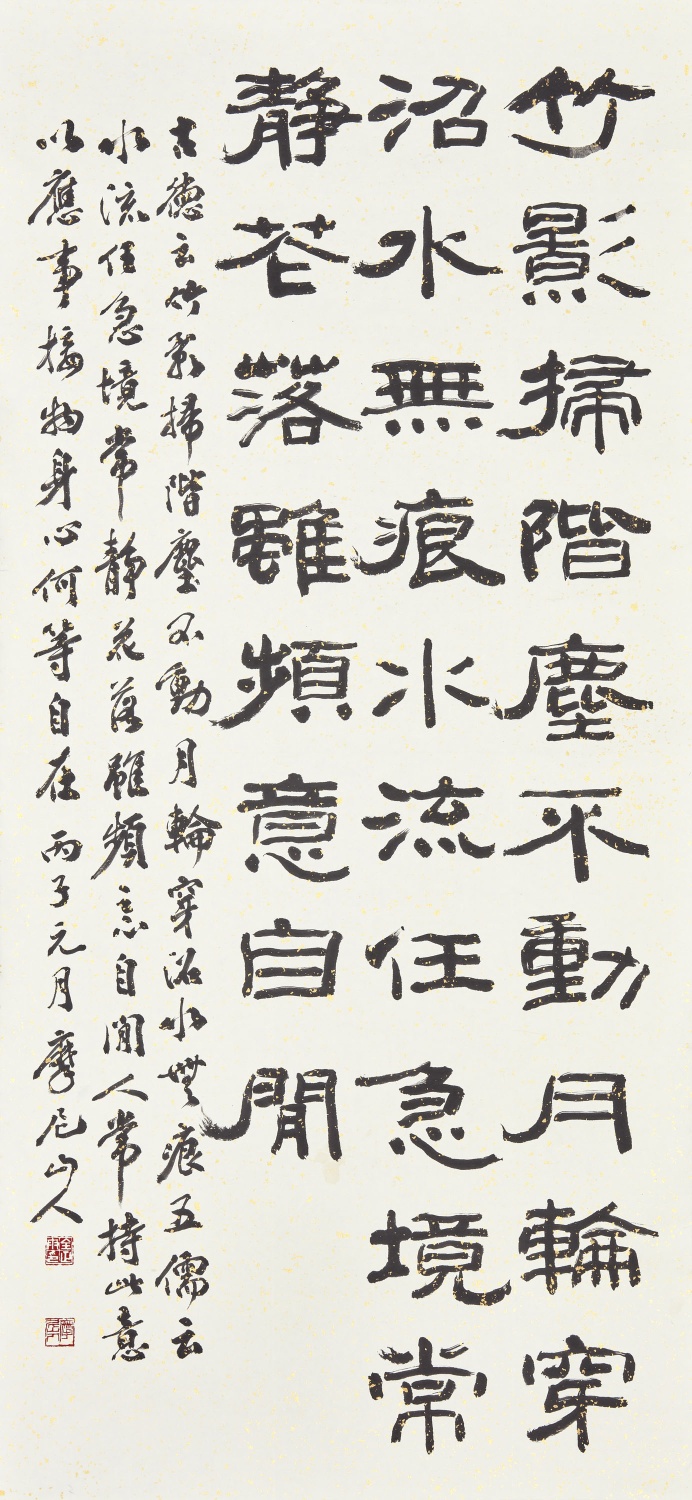 竹影掃階塵不動月輪穿
沼水無痕水流任急境常
靜花落雖頻意自閒
古德云竹影掃階塵不動月輪穿沼水無痕五儒云
水流任急境常靜花落雖頻意自閒人常持此意
以應事接物身心何等自在丙子元月摩尼山人